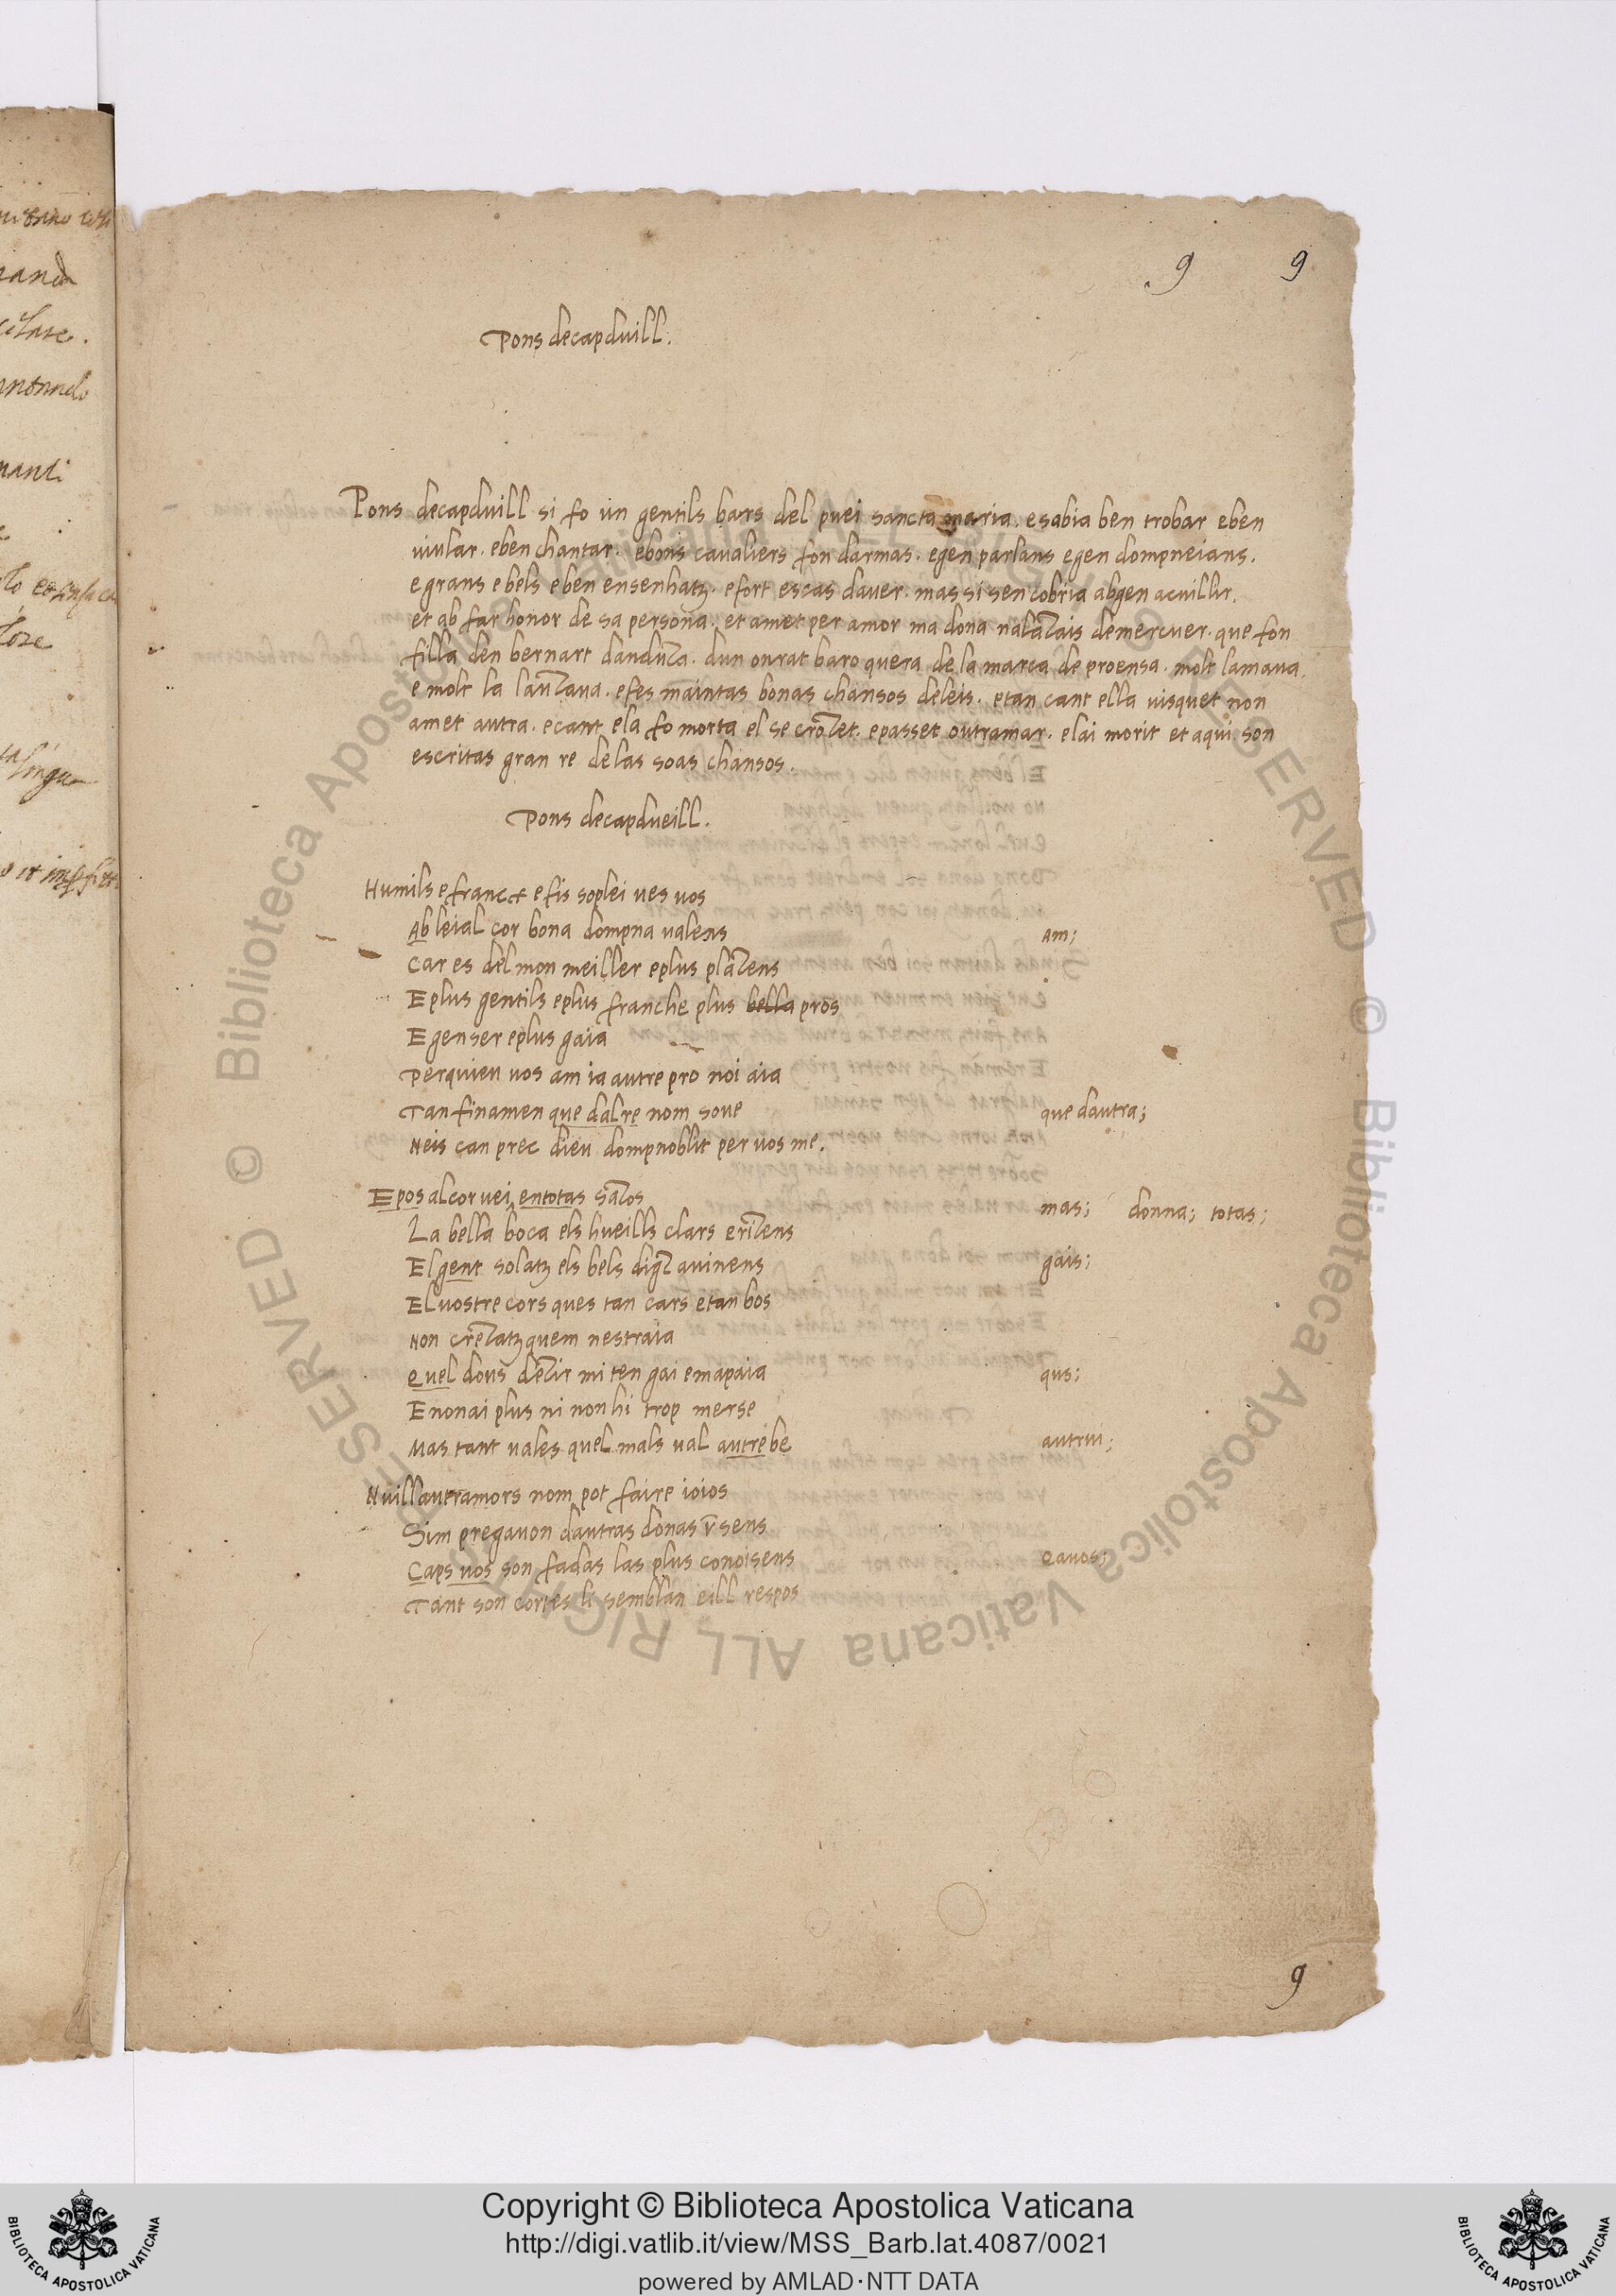 9 9
Pons decapduill.
Pons decapduill si fo un gentils bars del puei sancta maria. esabia ben trobar eben
uiular. eben chantar. ebons cavaliers fon darmas. egen parlans egen dompneians.
egrans ebels eben ensenhatz. efort escas dauer. mas si sen cobria abgen acuillir.
et ab far honor de sa persona. et amet per amor ma dona nalazais demercuer. que fon
filla den bernart danduza. dun onrat baro quera de la marca de proensa. molt lamaua.
e molt la lauzaua. efes maintas bonas chansos deleis. etan cant ella uisquet non
amet autra. ecant ela fo morta el se crozet. epasset outramar. elai morit et aqui son
escritas gran re de las soas chansos.
Pons decapdueill.
Humils efrancx efis soplei ues uos
Ab leial cor bona dompna ualens
am;
Car es del mon meiller eplus plazens
Eplus gentils eplus franche plus bella pros
Egenser eplus gaia
Perquieu uos am ia autre pro noi aia
Tan finamen que dalre nom soue
que dautra;
Neis can prec dieu dompnoblit per uos me.
Epos alcor uei entotas sazos
mas; donna; totas;
La bella boca els hueills clars erizens
Elgent solatz els bels digz auinens
gais;
El uostre cors ques tan cars etan bos
Non crezatz quem nestraia
Quel dous dezir mi ten gai emapaia
qus;
Enonai plus ni non hi trop merse
Mas tant uales quel mals ual autre be
autrui;
Nuillautramors nom pot faire ioios
Sim pregauon dautras donas sens
Caps uos son fadas las plus conoisens
cauos;
Tant son cortes li semblan eill respos
9
Copyright © Biblioteca Apostolica Vaticana
http://digi.vatlib.it/view/MSS_Barb.lat.4087/0021
powered by AMLAD·NTT DATA
BIBLIOTECA APOSTOLICA VATICANA
BIBLIOTECA APOSTOLICA VATICANA